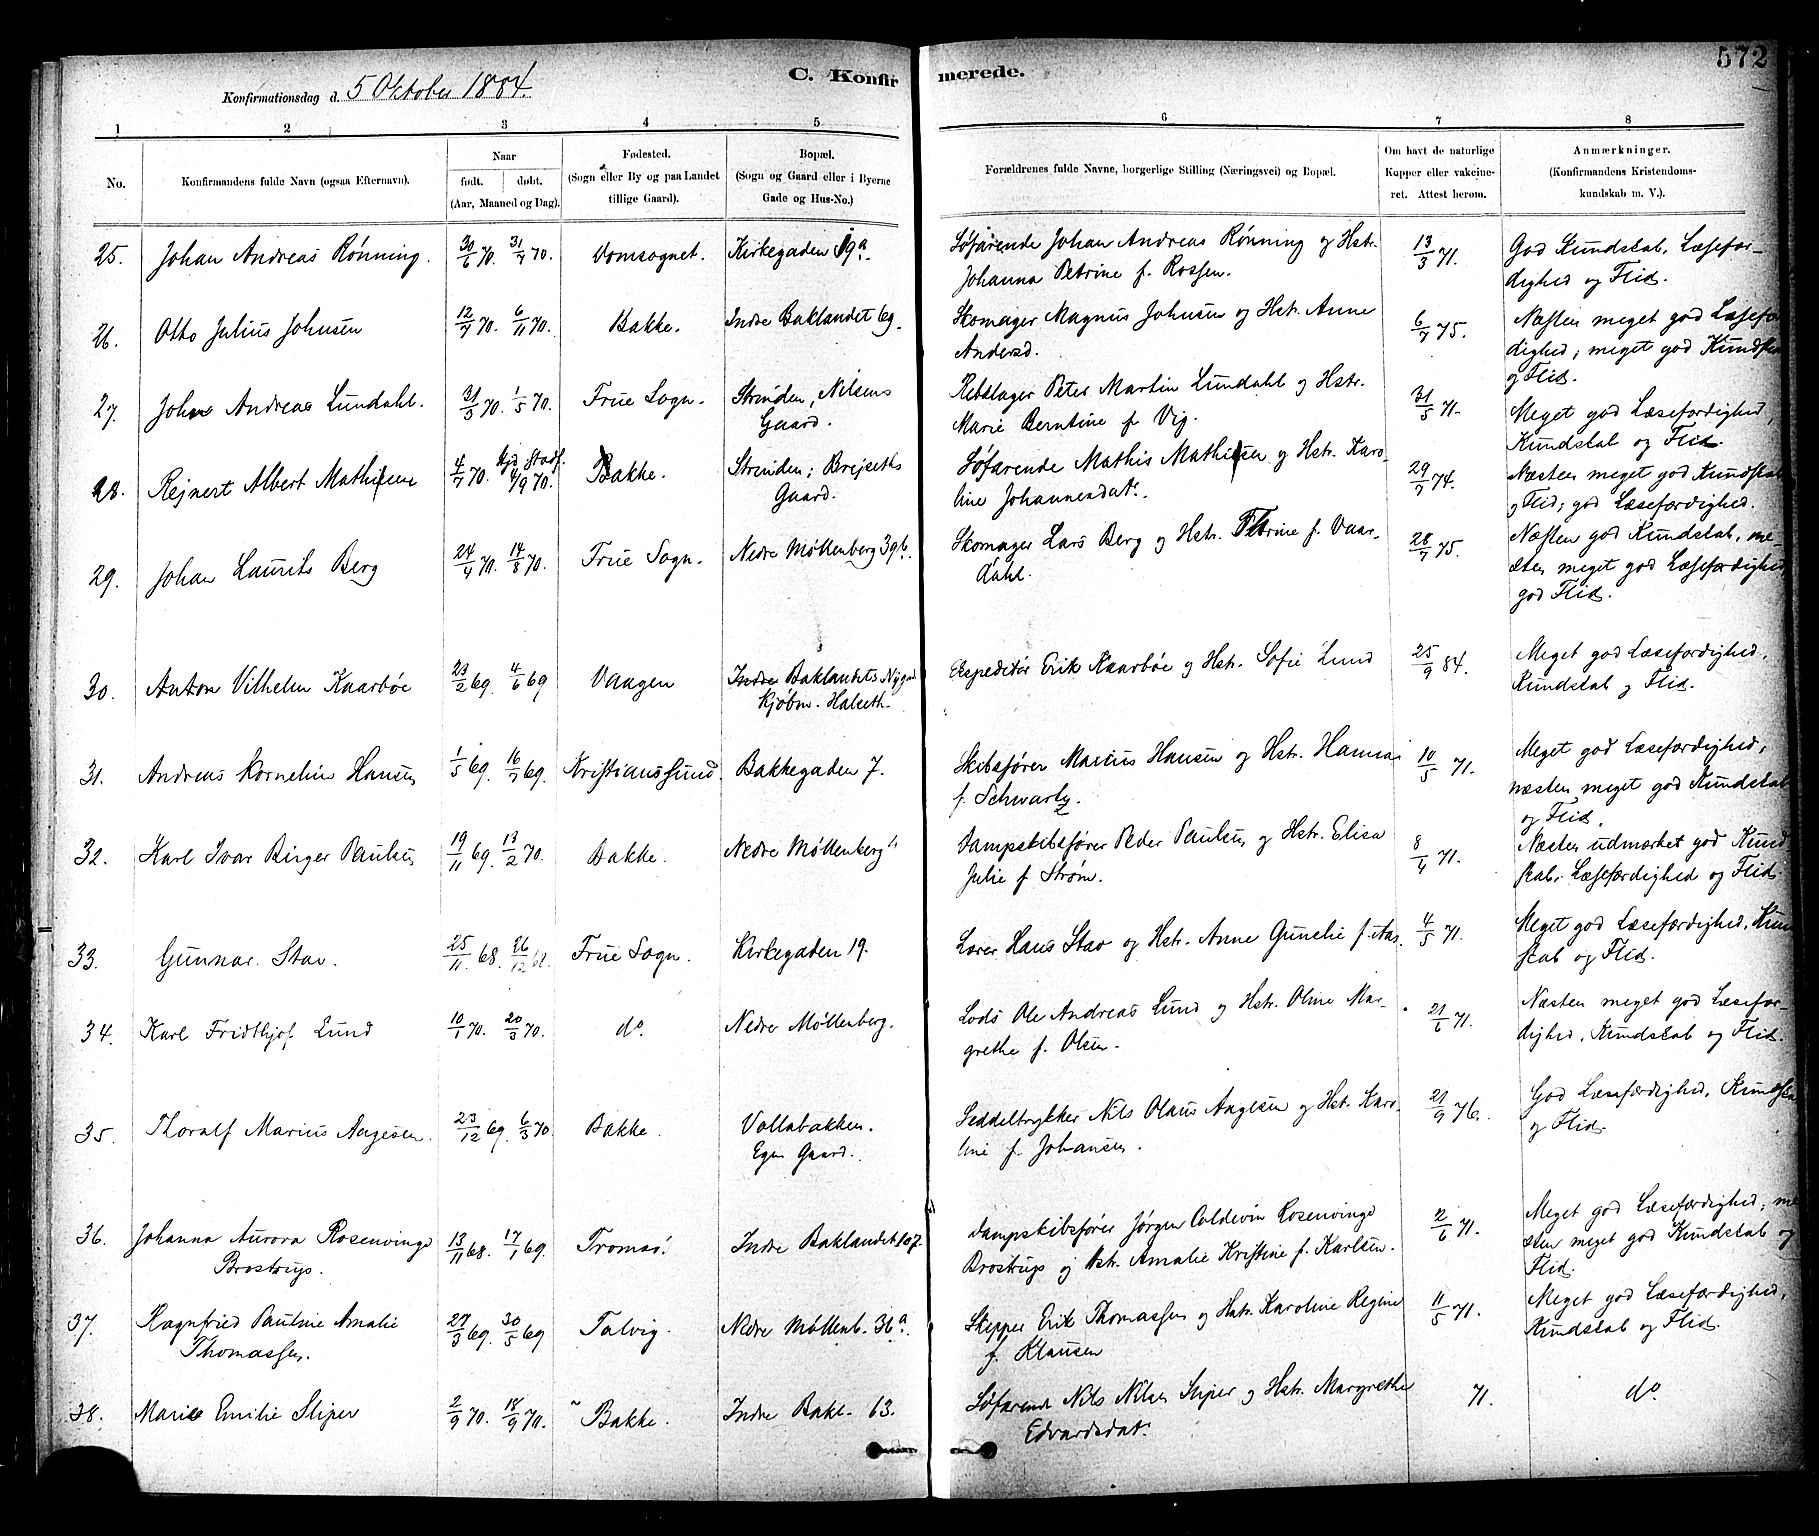 572
C. Konfirmerede.
Konfirmationsdag d. 5 Oktober 1884.
1 2 3 4 5 6 7 8
No.
Konfirmandens fulde Navn (ogsaa Efternavn).
Naar
født. døbt.
(Aar, Maaned og Dag).
Fødested.
(Sogn eller By og paa Landet
tillige Gaard).
Bopæl.
(Sogn og Gaard eller i Byerne
Gade og Hus-No.)
Forældrenes fulde Navne, borgerlige Stilling (Næringsvei) og Bopæl.
Om havt de naturlige
Kopper eller vakcine-
ret. Attest herom.
Anmærkninger.
(Konfirmandens Kristendoms-
kundskab m. V.)
25. Johan Andreas Rönning. 30/6 70. 31/7 70. Domsognet. Kirkegaden 19a. Söfarende Johan Andreas Rönning og Hstr. 13/3 71. God Kundskab, Læsefær-
Johanna Petrine f. Rossen. dighed og Flid.
26. Otto Julius Johnsen 12/7 70. 6/11 70. Bakke. Indre Baklandet 69. Skomager Magnus Johnsen og Hstr. Anne 6/7 75. Næsten meget god Læsefær-
Andersd. dighed; meget god Kundska
og Flid.
27. Johan Andreas Lundahl. 31/3 70. 1/5 70. Frue Sogn. Strinden, Nilsens Rebslager Peter Martin Lundahl og Hstr. 31/5 71. Meget god Læsefærdighed,
Gaard. Marie Berntine f. Vig. Kundskab og Flid.
28. Rejnert Albert Mathisen 4/7 70. hjd. Stadf. 4/9 70. Bakke. Strinden; Brejseths Söfarende Mathis Mathisen og Hstr. Karo- 29/7 74. Næsten meget god Kundskab
Gaard. line Johannesdatr. og Flid; god Læsefærdighed.
29. Johan Laurits Berg 24/4 70. 14/8 70. Frue Sogn. Nedre Möllenberg 39b. Skomager Lars Berg og Hstr. Petrine f. Vaar- 28/7 75. Næsten god Kundskab, næ-
dahl. sten meget god Læsefærdighed,
god Flid.
30. Anton Vilhelm Kaarböe 23/2 69. 4/6 69 Vaagen Indre Baklandets Nygd Expeditör Erik Kaarböe og Hstr. Sofie Lund 25/9 84. Meget god Læsefærdighed,
Kjöbm. Halseth. Kundskab og Flid.
31. Andreas Kornelius Hansen 1/5 69. 16/7 69. Kristianssund. Bakkegaden 7. Skibsförer Marius Hansen og Hstr. Hanna 10/5 71. Meget god Læsefærdighed,
f. Schwartz. næsten meget god Kundskab
og Flid.
32. Karl Ivar Birger Paulsen 19/11 69. 13/2 70. Bakke. Nedre Möllenberg Dampskibsförer Peder Paulsen og Hstr. Elisa 8/4 71. Næsten udmærket god Kund
Julie f. Ström. skab, Læsefærdighed og Flid.
33. Gunnar Stav. 25/11 68. 26/12 68. Frue Sogn. Kirkegaden 19. Lærer Hans Stav og Hstr. Anne Gunelie f. Aas. 4/5 71. Meget god Læsefærdighed, Kun
skab og Flid.
34. Karl Fridthjof Lund 10/1 70. 20/3 70. do. Nedre Möllenberg. Lods Ole Andreas Lund og Hstr. Oline Mar- 21/6 71. Næsten meget god Læsefær-
grethe f. Olsen. dighed, Kundskab og Flid.
35. Thoralf Marius Aagesen. 23/12 69. 6/3 70. Bakke. Vollabakken. Seddeltrykker Nils Olaus Aagesen og Hst. Karo- 21/9 76. God Læsefærdighed, Kundska
Egen Gaard. line f. Johansen. og Flid.
36. Johanna Aurora Rosenvinge 13/11 68. 17/1 69. Tromsö. Indre Baklandet 107. Dampskibsförer Jörgen Coldevin Rosenvinge 2/6 71. Meget god Læsefærdighed; næ
Brostrup. Brostrup og Hstr. Amalie Kristine f. Karlsen. sten meget god Kundskab og
Flid.
37. Ragnfried Pauline Amalie 27/3 69. 30/5 69 Talvig. Nedre Möllenb. 36a. Skipper Erik Thomassen og Hstr. Karoline Regine 11/5 71. Meget god Læsefærdighed,
Thomassen. f. Klausen Kundskab og Flid.
38. Marie Emilie Sliper 2/9 70. 18/9 70. Bakke. Indre Bakl. 63. Söfarende Nils Nilsen Sliper og Hstr. Margrethe 71. do.
Edvardsdatr.